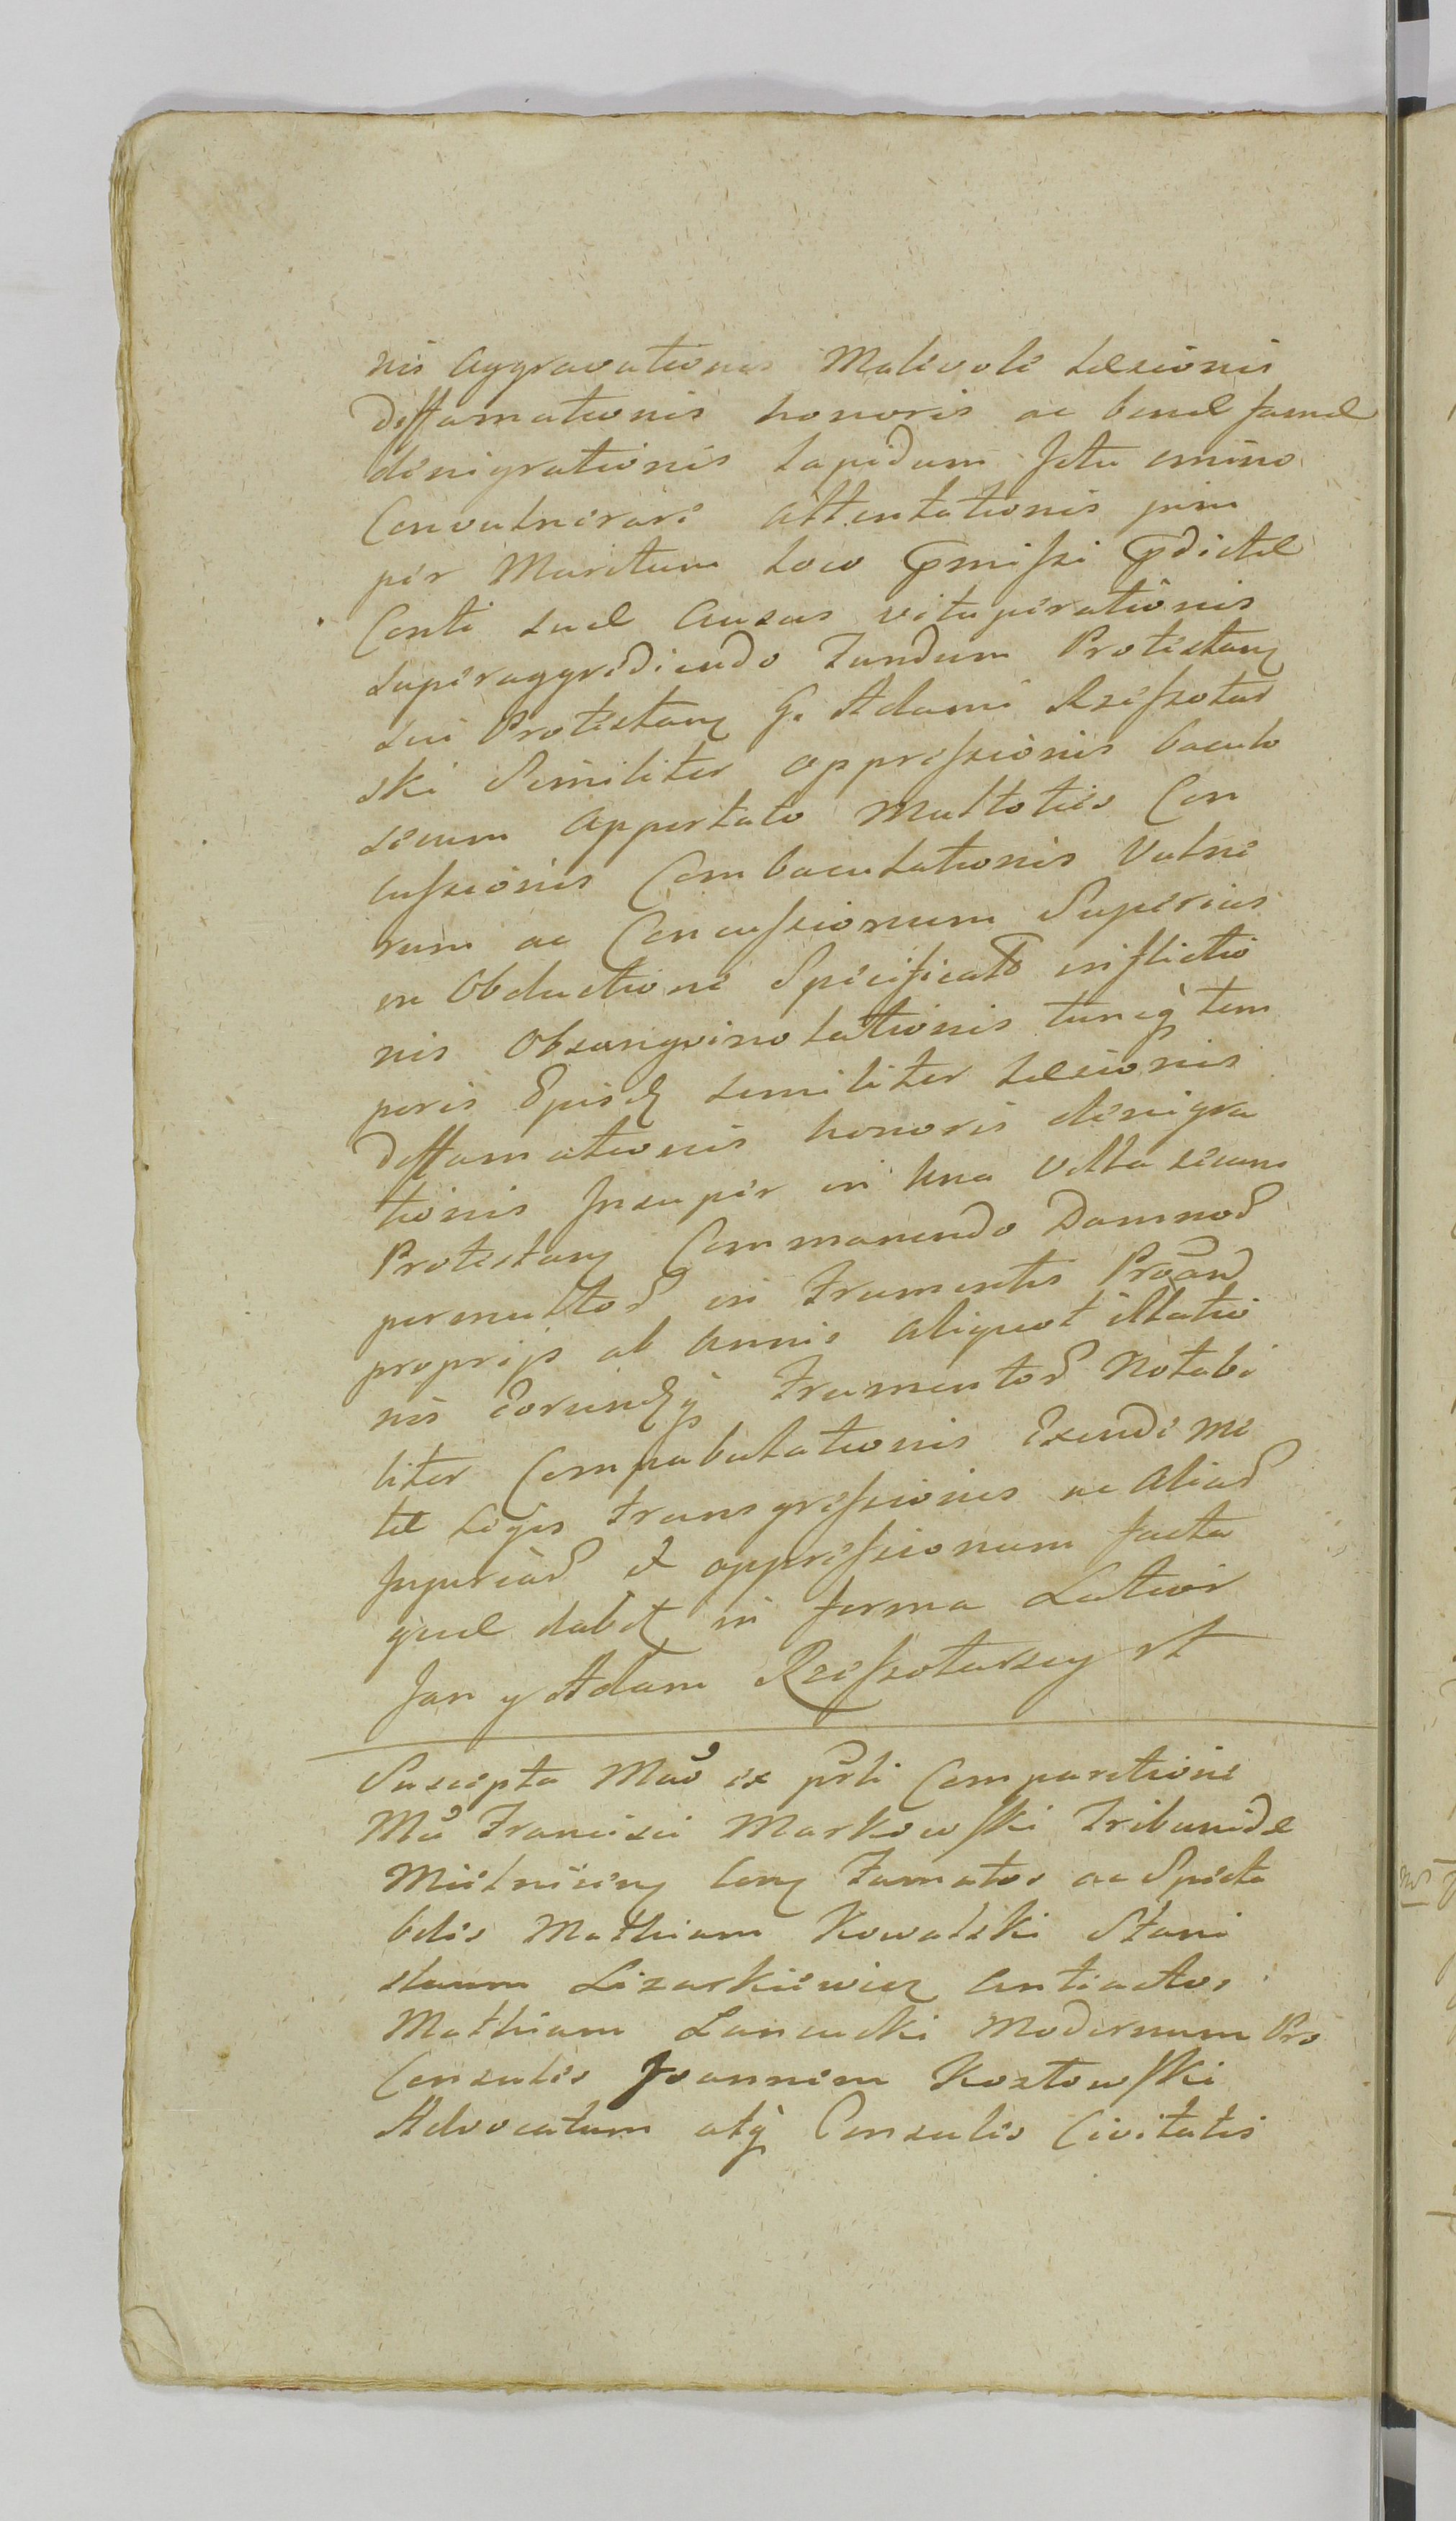 nis Aggravationis Malevolæ Læsionis
Diffamationis honoris ac bonæ famæ
denigrationis Lapidum Jctu emino
Convulnerari Attentationis prim
per Maritum Loco pmissi pdictæ
Conti suæ Ausus vituperationis
superaggrediendo Fundum Protestanz
sui Protestanz G. Adami Rzeszotar
ski Similiter oppressionis baculo
secum Apportato Multoties Con
cussionis Combaculationis Vulne
rum ac Concussionum Superius
in Obductione Specificat inflictio
nis Obsangvinolationis tuncq tem
poris Ejusdz similiter Læsionis
Diffamationis honoris denigra
tionis Insuper in Una Villa secum
Protestanz Commanendo Damnor
permultor in Frumentis Proan
proprijs ab Annis Aliquot illatio
nis Eorundzq Frumentor Notabi
liter Compabulationis Exinde Me
tæ Legis transgressionis ac Aliar
Injuriar et oppressionum facta
quæ dabit in forma Latior
Jan y Adam Rzeszotarscy rt
Suscepta Mao ex prli Comparitione
Mci Francisci Markowski Tribunidæ
Mielnicenz Conz Famatos ac Specta
biles Mathiam Kowalski Stani
slaum Lizarkiewicz Antiactos
Mathiam Lancucki Modernum Pro
Consules Joannem Kozłowski
Advocatum atq Consules Civitatis